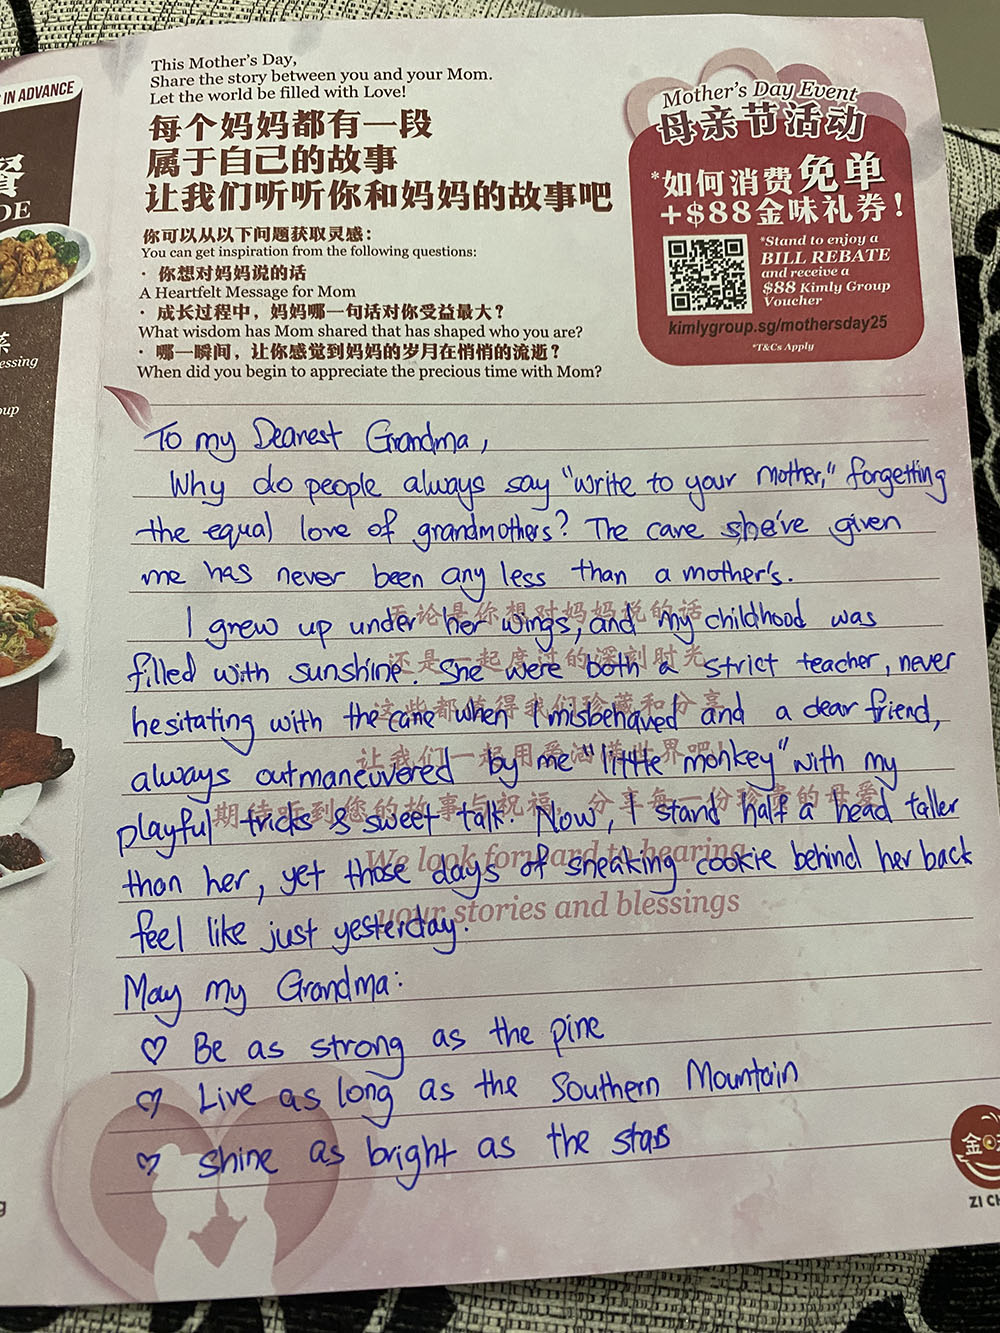 IN ADVANCE
餐
DE
菜
essing
oup
This Mother's Day,
Share the story between you and your Mom.
Let the world be filled with Love!
每个妈妈都有一段
属于自己的故事
让我们听听你和妈妈的故事吧
你可以从以下问题获取灵感：
You can get inspiration from the following questions:
· 你想对妈妈说的话
A Heartfelt Message for Mom
· 成长过程中，妈妈哪一句话对你受益最大？
What wisdom has Mom shared that has shaped who you are?
· 哪一瞬间，让你感觉到妈妈的岁月在悄悄的流逝？
When did you begin to appreciate the precious time with Mom?
Mother's Day Event
母亲节活动
*如何消费免单
+$88金味礼券！
*Stand to enjoy a
BILL REBATE
and receive a
$88 Kimly Group
Voucher
kimlygroup.sg/mothersday25
*T&Cs Apply
To my Dearest Grandma,
Why do people always say "write to your mother," forgetting
the equal love of grandmothers? The care she've given
me has never been any less than a mother's.
无论是你想对妈妈说的话
I grew up under her wings, and my childhood was
还是一起度过的深刻时光
filled with sunshine. She were both a strict teacher, never
这些都值得我们珍藏和分享
hesitating with the cane when I misbehaved and a dear friend,
让我们一起用爱洒满世界吧！
always outmaneuvered by me "little monkey" with my
期待听到您的故事与祝福，分享每一份珍贵的母爱
playful tricks & sweet talk. Now, I stand half a head taller
We look forward to hearing
than her, yet those days of sneaking cookie behind her back
your stories and blessings
feel like just yesterday.
May my Grandma:
♡ Be as strong as the pine
♡ Live as long as the Southern Mountain
♡ shine as bright as the stars
金
ZI CH
g